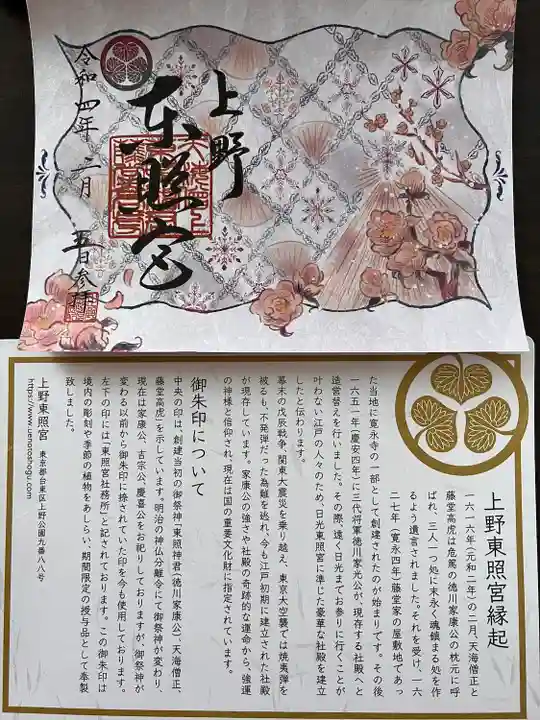 上野
東照宮
令和四年 二月 五日参拝
上野東照宮縁起
一六一六年（元和二年）の二月、天海僧正と
藤堂高虎は危篤の徳川家康公の枕元に呼
ばれ、三人一つ処に末永く魂鎮まる処を作
るよう遺言されました。それを受け、一六
二七年（寛永四年）藤堂家の屋敷地であっ
た当地に寛永寺の一部として創建されたのが始まりです。その後
一六五一年（慶安四年）に三代将軍徳川家光公が現存する社殿へと
造営替えを行いました。その際、遠く日光までお参りに行くことが
叶わない江戸の人々のため、日光東照宮に準じた豪華な社殿を建立
したと伝わります。
幕末の戊辰戦争、関東大震災を乗り越え、東京大空襲では焼夷弾を
被るも、不発弾だった為難を逃れ、今も江戸初期に建立された社殿
が現存しています。家康公の強さや社殿の奇跡的な運命から、強運
の神様と信仰され、現在は国の重要文化財に指定されています。
御朱印について
中央の印は、創建当初の御祭神「東照神君（徳川家康公）、天海僧正、
藤堂高虎」を示しています。明治の神仏分離令にて御祭神が変わり、
現在は家康公、吉宗公、慶喜公をお祀りしておりますが、御祭神が
変わる以前から御朱印に捺されていた印を今も使用しております。
左下の印には「東照宮社務所」と記されております。この御朱印は
境内の彫刻や季節の植物をあしらい、期間限定の授与品として奉製
致しました。
上野東照宮 東京都台東区上野公園九番八八号
https://www.uenotoshogu.com